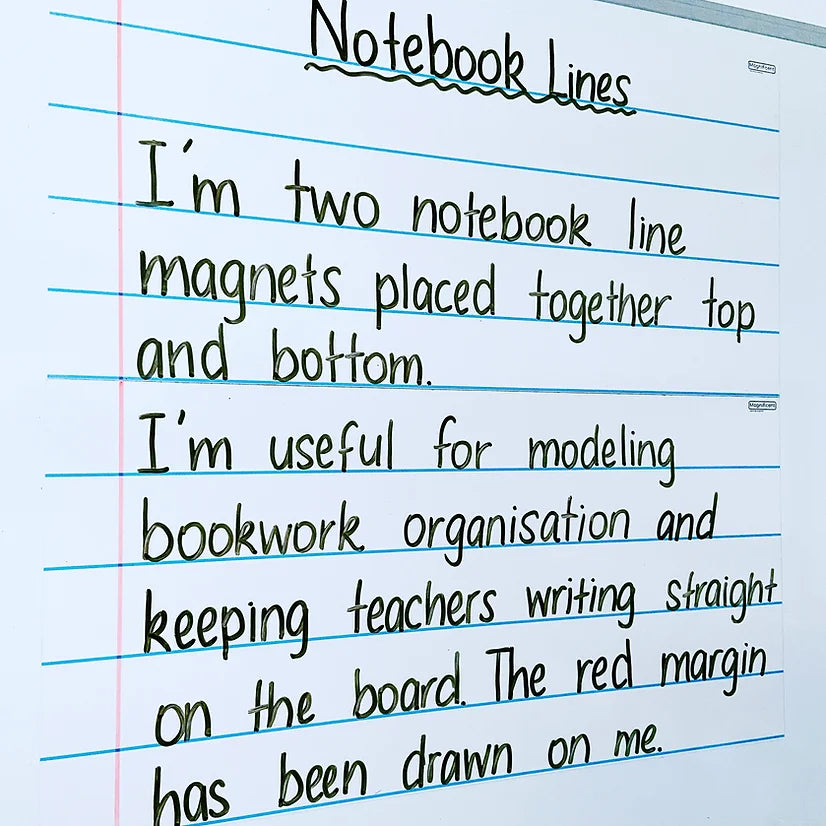 Notebook Lines
Magnificent
I'm two notebook line
magnets placed together top
and bottom.
Magnificent
I'm useful for modeling
bookwork organisation and
keeping teachers writing straight
on the board. The red margin
has been drawn on me.